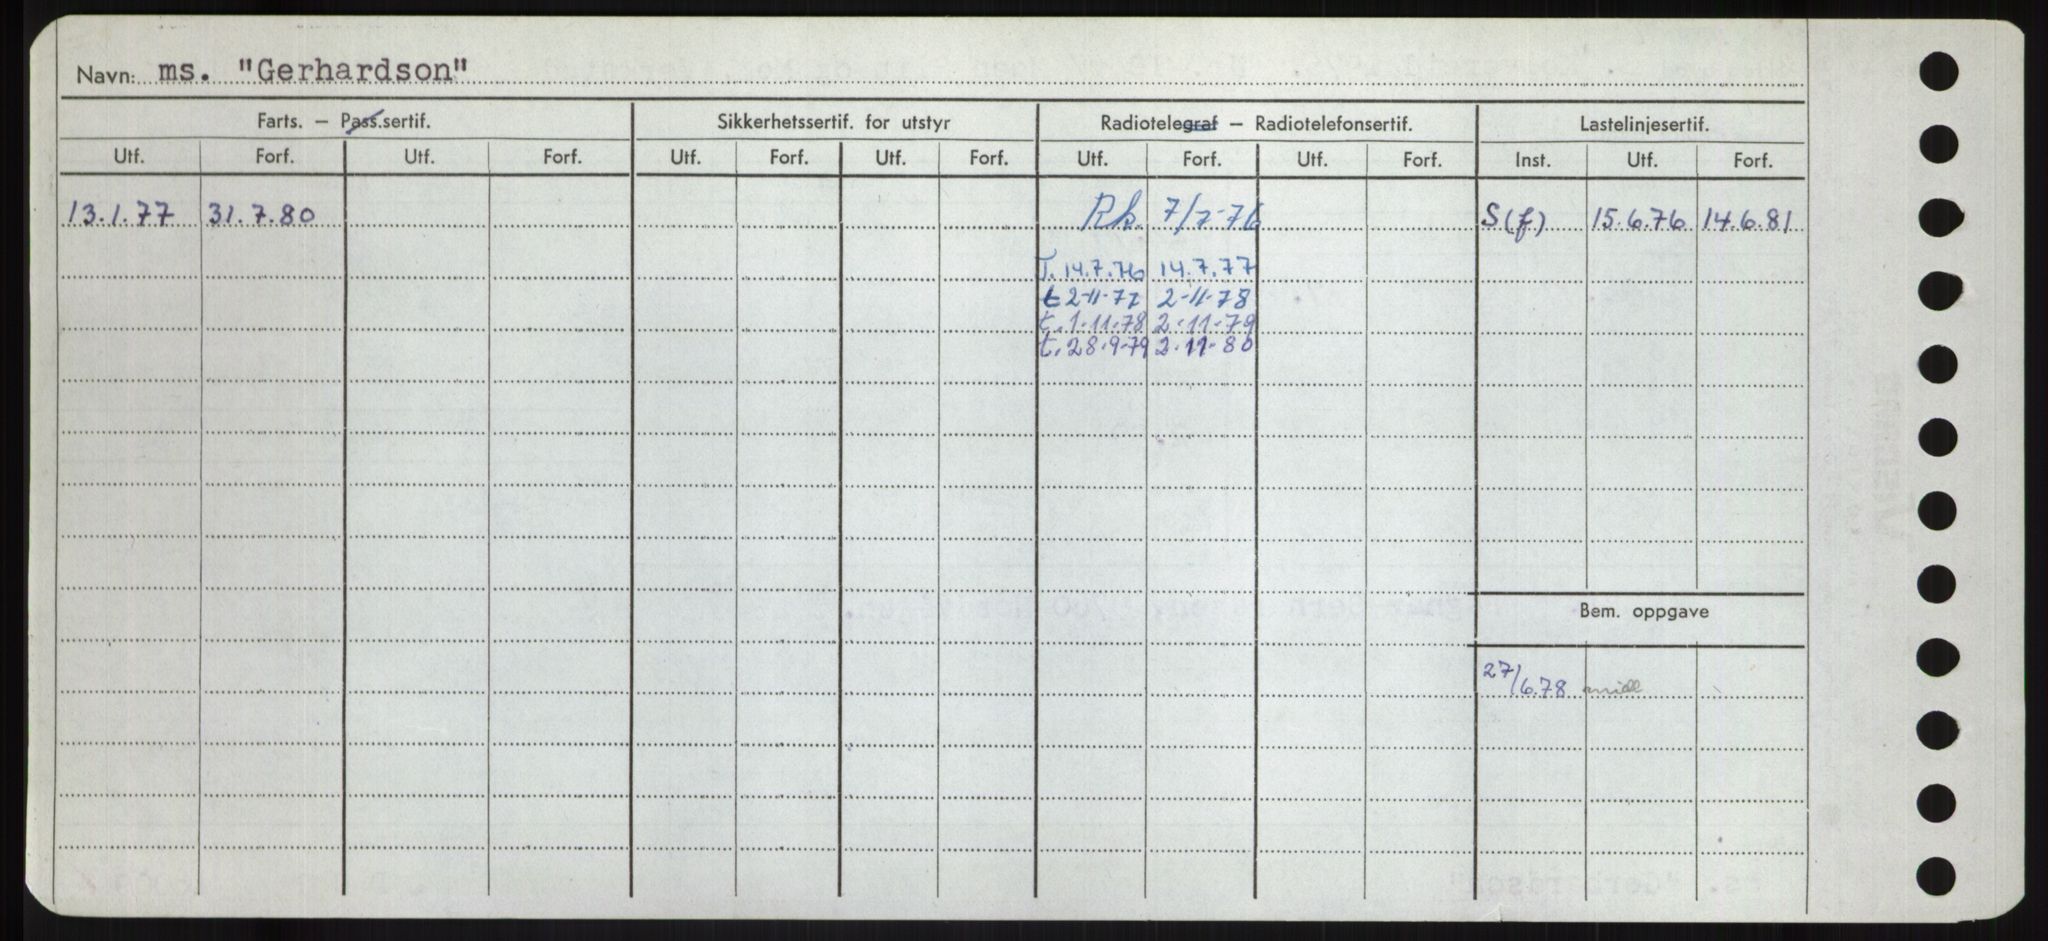 Navn: ms. "Gerhardson"
Farts. – Pass.sertif. Sikkerhetssertif. for utstyr Radiotelegraf – Radiotelefonsertif. Lastelinjesertif.
Utf. Forf. Utf. Forf. Utf. Forf. Utf. Forf. Utf. Forf. Utf. Forf. Inst. Utf. Forf.
13.1.77 31.7.80 Rk. 7/7-76 S(f) 15.6.76 14.6.81
T. 14.7.76 14.7.77
t 2-11-77 2-11-78
t. 1-11-78 2-11-79
t. 28-9-79 2-11-80
Bem. oppgave
27/6.78